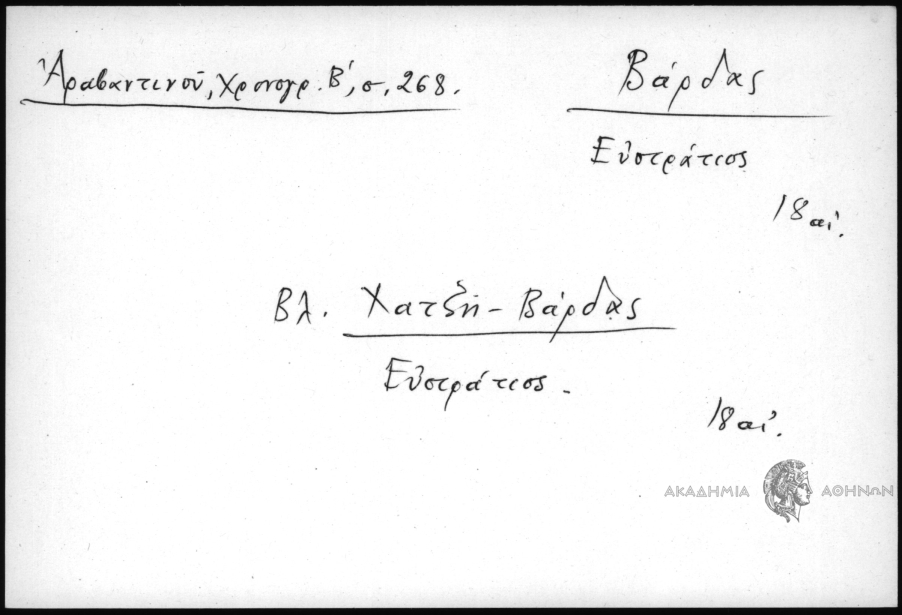 Ἀραβαντινοῦ, Χρονογρ. Β΄, σ. 268.
Βάρδας
Εὐστράτιος
18 αἰ.
Βλ. Χατζῆ - Βάρδας
Εὐστράτιος.
18 αἰ.
ΑΚΑΔΗΜΙΑ ΑΘΗΝΩΝ